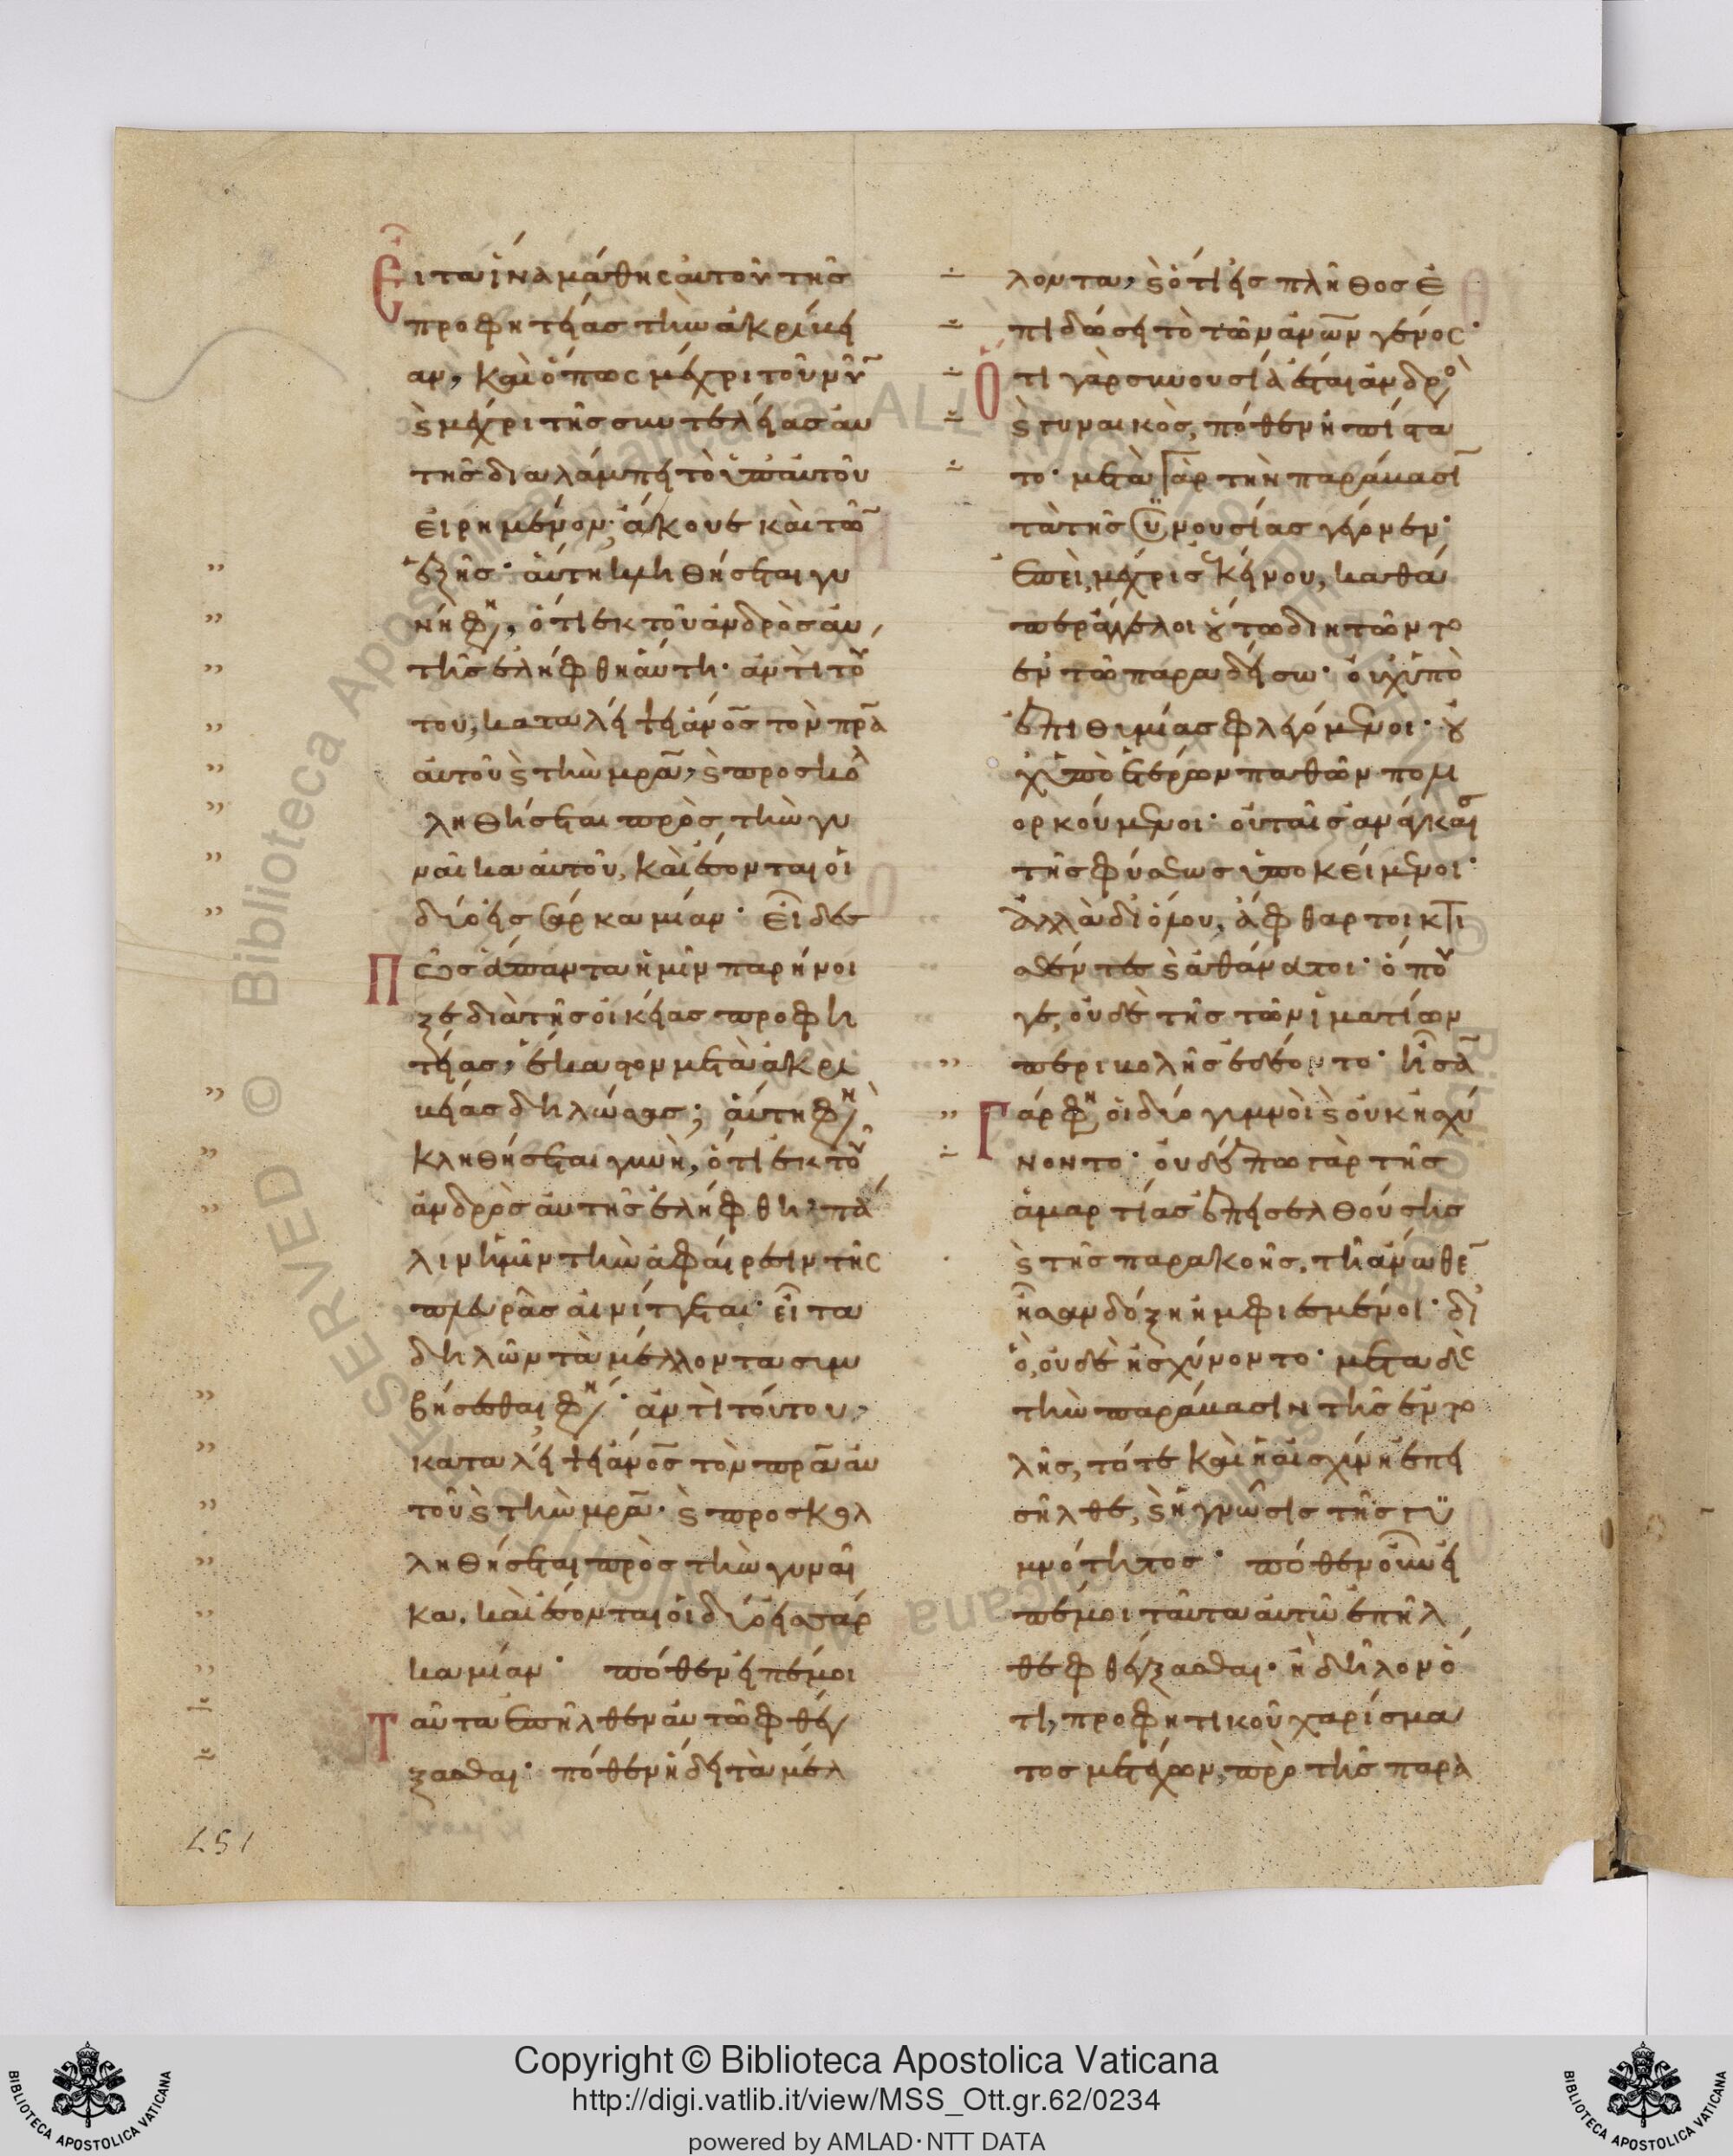 Εἶτα ἵνα μάθης αὐτοῦ τῆς
προφητείας τὴν ἀκρίβει
αν, καὶ ὅπως μέχρι τοῦ νῦ̅
ϛ̀ μέχρι τῆς συντελείας αὐ
τῆς διαλάμπει τὸ ὑπ' αὐτοῦ
εἰρημένον, ἄκουε καὶ τῶ̅
ἑξῆς· αὕτη κληθήσεται γυ
νὴ φη, ὅτι ἐκ τοῦ ἀνδρὸς αὐ
τῆς ἐλήφθη αὕτη· ἀντὶ τού
του, καταλείψει ἄνο̅ς τὸν πρ̅α
αὐτοῦ ϛ̀ τὴν μρ̅α, ϛ̀ προσκολ
ληθήσεται πρὸς τὴν γυ
ναῖκα αὐτοῦ, καὶ ἔσονται οἱ
δύο εἰς σάρκα μίαν· εἶδες
Πῶς ἅπαντα ἡμῖν παρήνοι
ξε διὰ τῆς οἰκείας προφη
τείας, ἕκαστον μετὰ ἀκρι
βείας δηλώσας; αὕτη φη
κληθήσεται γυνὴ, ὅτι ἐκ τοῦ
ἀνδρὸς αὐτῆς ἐλήφθη, πά
λιν ἡμῖν τὴν ἀφαίρεσιν τῆς
πλευρᾶς αἰνίττεται· εἶτα
δηλῶν τὰ μέλλοντα συμ
βήσεσθαι φη· ἀντὶ τούτου,
καταλείψει ἄνο̅ς τὸν πρ̅α αὐ
τοῦ ϛ̀ τὴν μρ̅α· ϛ̀ προσκολ
ληθήσεται πρὸς τὴν γυναῖ
κα, καὶ ἔσονται οἱ δύο εἰς σάρ
κα μίαν· πόθεν εἰπέ μοι
Ταῦτα ἐπῆλθεν αὐτῶ φθέγ
ξασθαι· πόθεν ἤδει τὰ μέλ
λοντα, ϛ̀ ὅτι εἰς πλῆθος ἐ
πιδώσει τὸ τῶν ἀνω̅ν γένος·
Ὅτι γὰρ συνουσία ἔσται ἀνδρὸ
ϛ̀ γυναικὸς, πόθεν ἠπίστα
το· μετὰ γὰρ τὴν παράβασι̅
τὰ τῆς συνουσίας γέγονεν·
ἐπεὶ μέχρις ἐκείνου, καθά
περ ἄγγελοι οὕτω διῃτῶντο
ἐν τῶ παραδείσω· οὐχ ὑπὸ
ἐπιθυμίας φλεγόμενοι· οὐ
χ ὑπὸ ἑτέρων παθῶν πολι
ορκούμενοι· οὐ ταῖς ἀνάγκαις
τῆς φύσεως ὑποκείμενοι·
Ἀλλὰ διόλου, ἄφθαρτοι κτι
σθέντες ϛ̀ ἀθάνατοι· ὅπου
γε, οὐδὲ τῆς τῶν ἱματίων
περιβολῆς ἐδέοντο· ἦσα̅
Γὰρ φη οἱ δύο γυμνοὶ ϛ̀ οὐκ ἠσχύ
νοντο· οὐδέπω γὰρ τῆς
ἁμαρτίας ἐπεισελθούσης
ϛ̀ τῆς παρακοῆς, τῆ ἄνωθε̅
ἦσαν δόξη ἠμφιεσμένοι· δι
ὸ, οὐδὲ ἠσχύνοντο· μετὰ δὲ
τὴν παράβασιν τῆς ἐντο
λῆς, τότε καὶ ἡ αἰσχύνη ἐπει
σῆλθε, ϛ̀ ἡ γνῶσις τῆς γυ
μνότητος· πόθεν οὖν εἰ
πέ μοι ταῦτα αὐτῶ ἐπῆλ
θε φθέγξασθαι· ἢ δῆλον ὅ
τι, προφητικοῦ χαρίσμα
τος μετέχων, πρὸ τῆς παρα
451
Copyright © Biblioteca Apostolica Vaticana
http://digi.vatlib.it/view/MSS_Ott.gr.62/0234
powered by AMLAD·NTT DATA
BIBLIOTECA APOSTOLICA VATICANA
BIBLIOTECA APOSTOLICA VATICANA